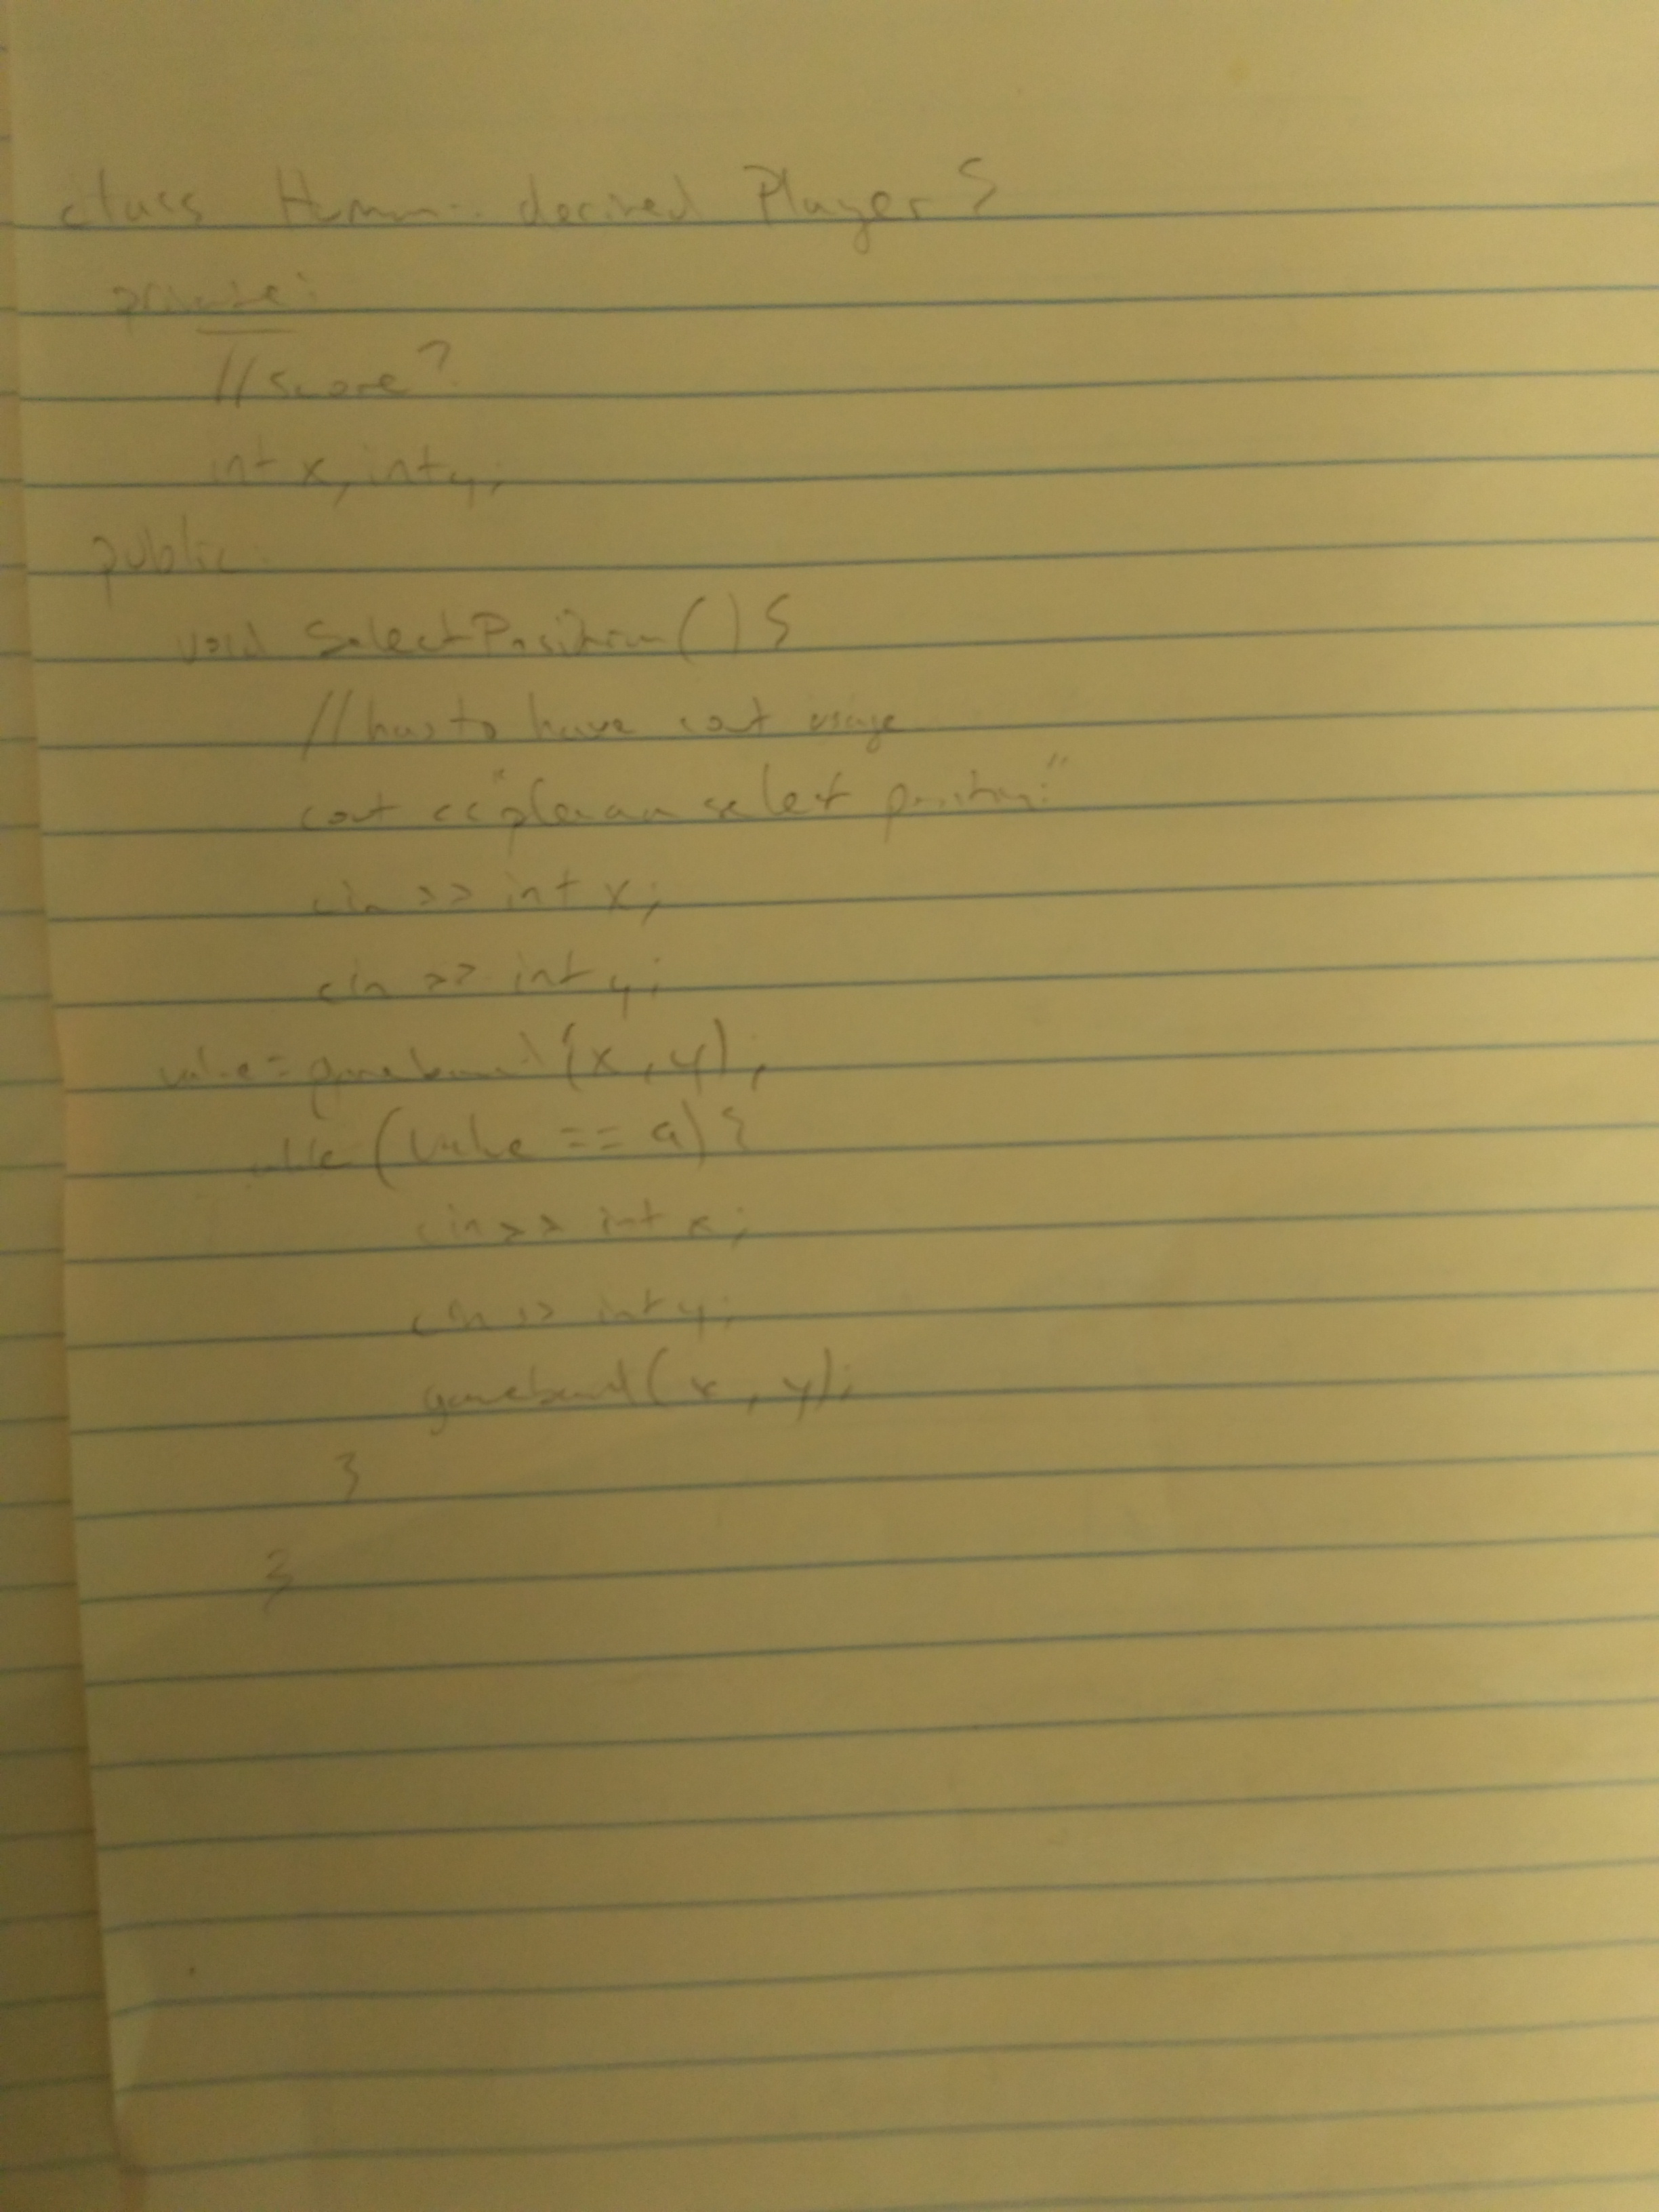 class Human: derived Player {
private:
//score?
int x, int y;
public:
void SelectPosition() {
//has to have cout usage
cout << "please select position:"
cin >> int x;
cin >> int y;
value = gameboard(x, y);
while (value == a) {
cin >> int x;
cin >> int y;
gameboard(x, y);
}
}